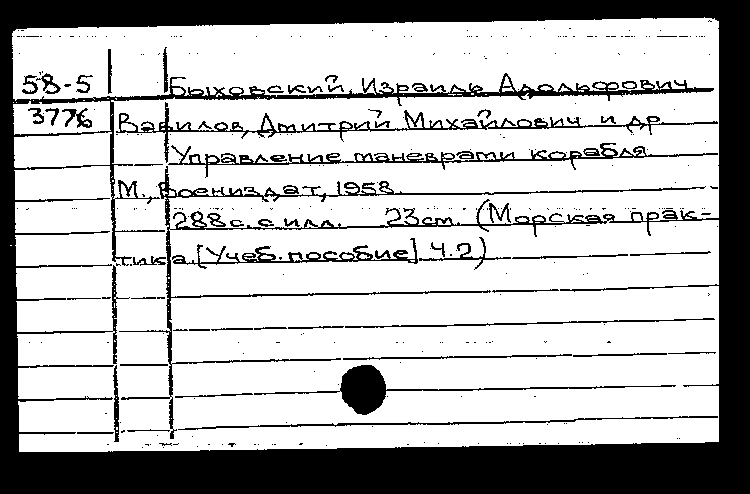 58-5 Быховский, Израиль Адольфович
3776 Вавилов, Дмитрий Михайлович и др.
Управление маневрами корабля.
М., Воениздат, 1958.
288 с. с илл. 23 см. (Морская прак-
тика. [Учеб. пособие] Ч. 2)